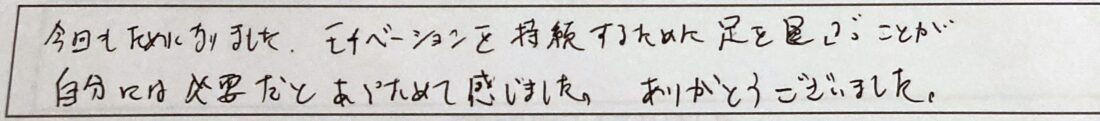 今回もためになりました。モチベーションを持続するために足を運ぶことが
自分には必要だとあらためて感じました。ありがとうございました。